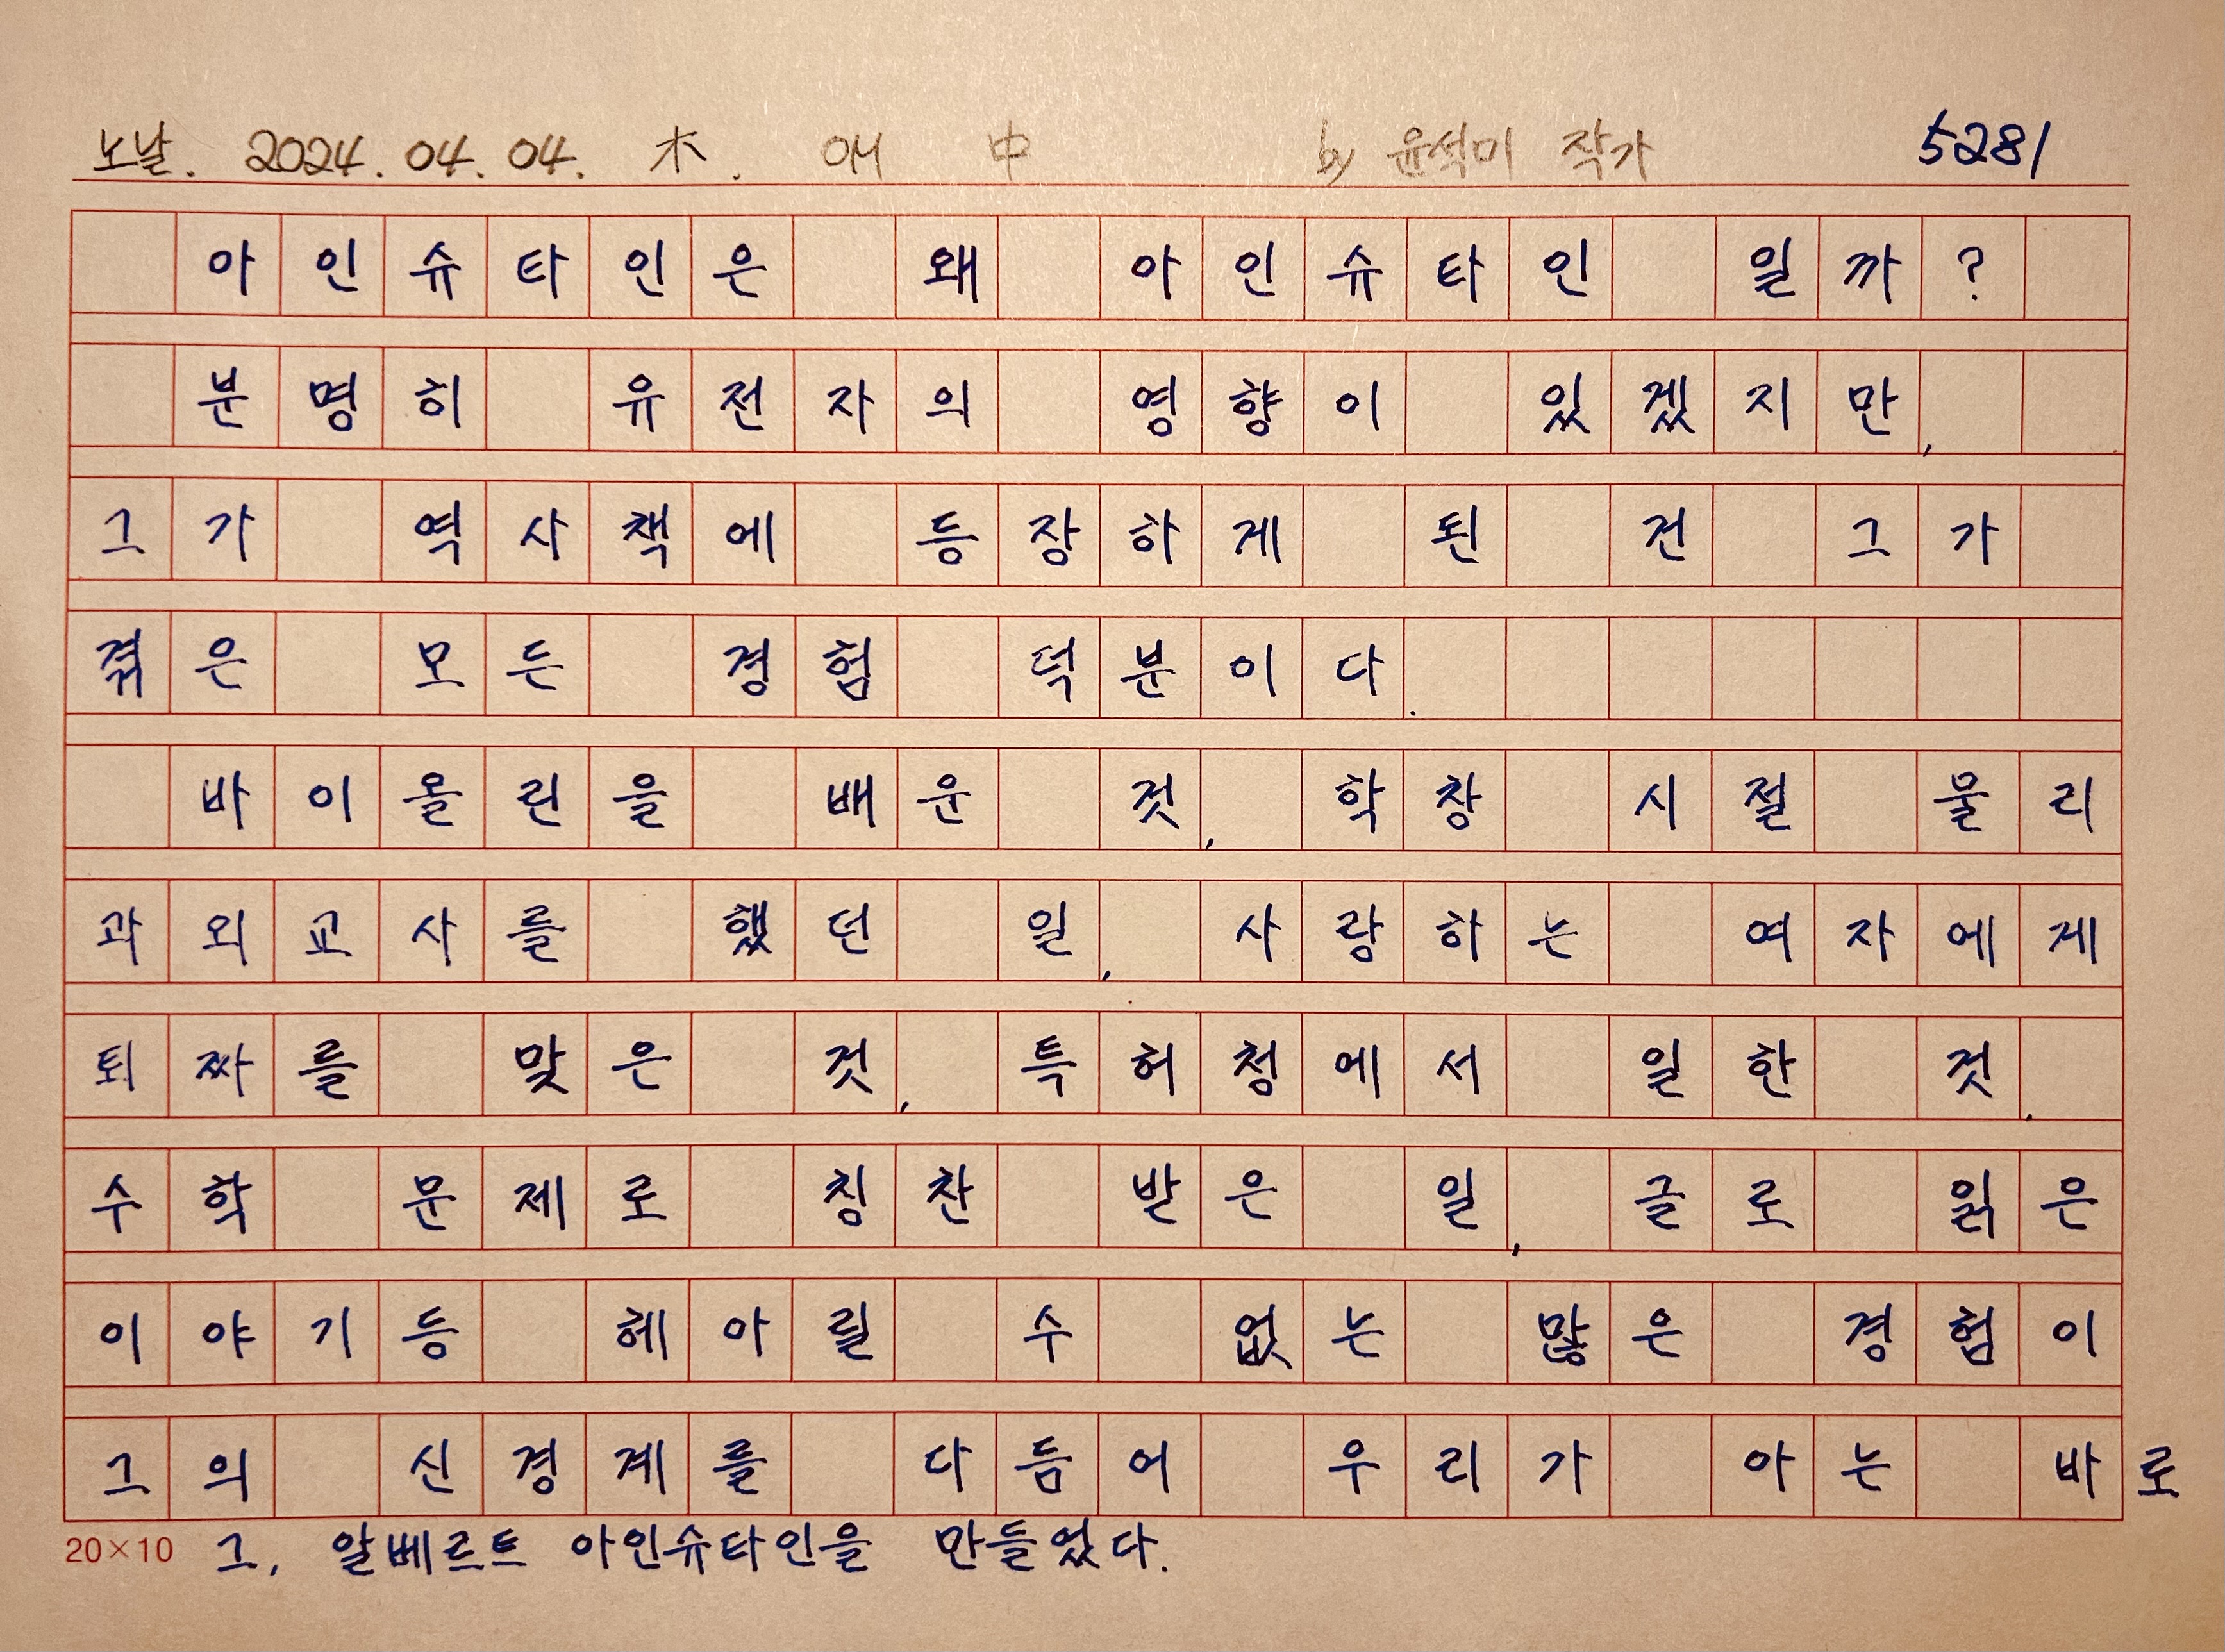 노날. 2024. 04. 04. 木. 애 中 by 윤석미 작가 5281
아인슈타인은 왜 아인슈타인 일까?
분명히 유전자의 영향이 있겠지만,
그가 역사책에 등장하게 된 건 그가
겪은 모든 경험 덕분이다.
바이올린을 배운 것, 학창 시절 물리
과외교사를 했던 일, 사랑하는 여자에게
퇴짜를 맞은 것, 특허청에서 일한 것,
수학 문제로 칭찬 받은 일, 글로 읽은
이야기등 헤아릴 수 없는 많은 경험이
그의 신경계를 다듬어 우리가 아는 바로
20×10 그, 알베르트 아인슈타인을 만들었다.